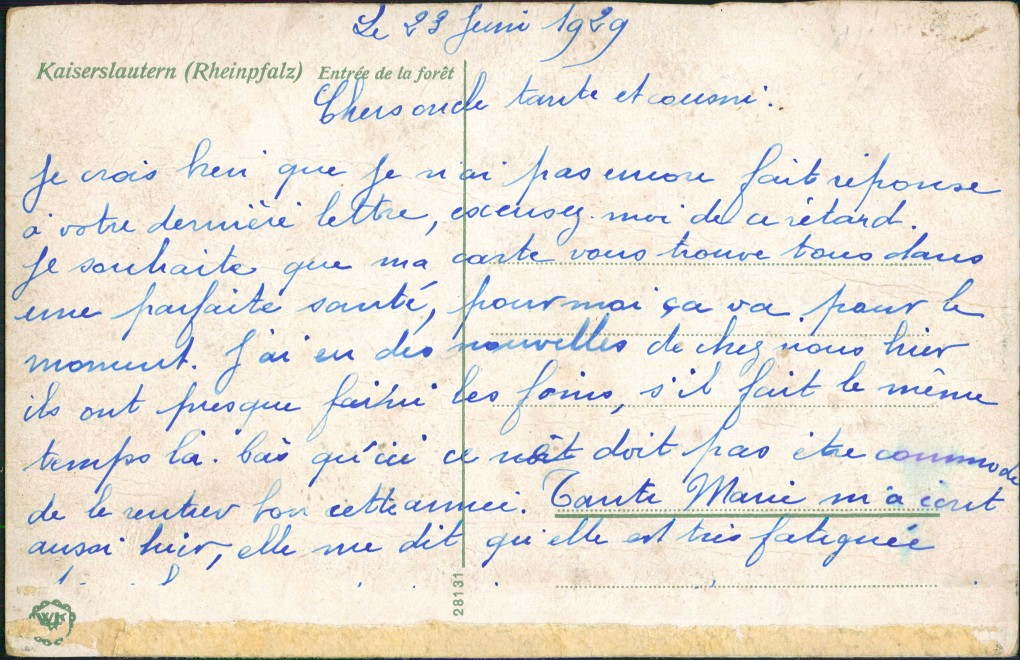 Le 23 Juin 1929
Kaiserslautern (Rheinpfalz) Entrée de la forêt
Chers oncle tante et cousin.
Je crois bien que je n'ai pas encore fait réponse
à votre dernière lettre, excusez-moi de ce rétard.
Je souhaite que ma carte vous trouve tous dans
une parfaite santé, pour moi ça va pour le
moment. J'ai eu des nouvelles de chez nous hier
ils ont presque fini les foins, s'il fait le même
temps là-bas qu'ici ce doit pas être commode
de le rentrer bon cette année. Tante Marie m'a écrit
aussi hier, elle me dit qu'elle est très fatiguée
28131
WK